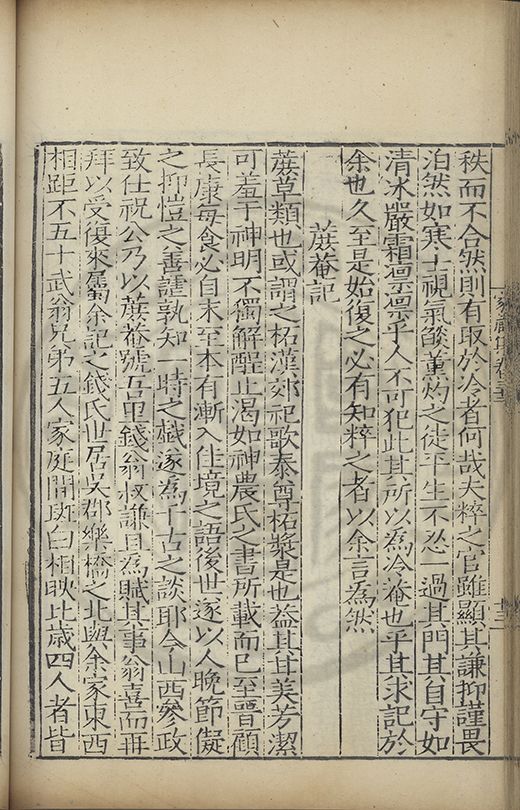 秩而不合然則有取於冷者何哉夫粹之官雖顯其謙抑謹畏
泊然如寒士視氣燄薰灼之徒平生不忍一過其門其自守如
清冰嚴霜凛凛乎人不可犯此其所以為冷淹也乎其求記於
余也久至是始復之必有知粹之者以余言為然
蔗菴記
蔗草類也或謂之柘漢郊祀歌泰尊柘漿是也益其甘美芳潔
可羞于神明不獨解酲止渴如神農氏之書所載而巳至晉顧
長康每食必自末至本有漸入佳境之語後世遂以人晚節儗
之抑愷之善謹孰知一時之戱遂為千古之談耶今山西參政
致仕祝公乃以蔗菴號吾吊錢翁叔謙且為賦其事翁喜而再
拜以受復來屬余記之錢氏世居吳郡樂橋之北與余家東西
相距不五十武翁兄弟五人家庭間斑白相映比歲四人者皆
家藏集卷三十
十二